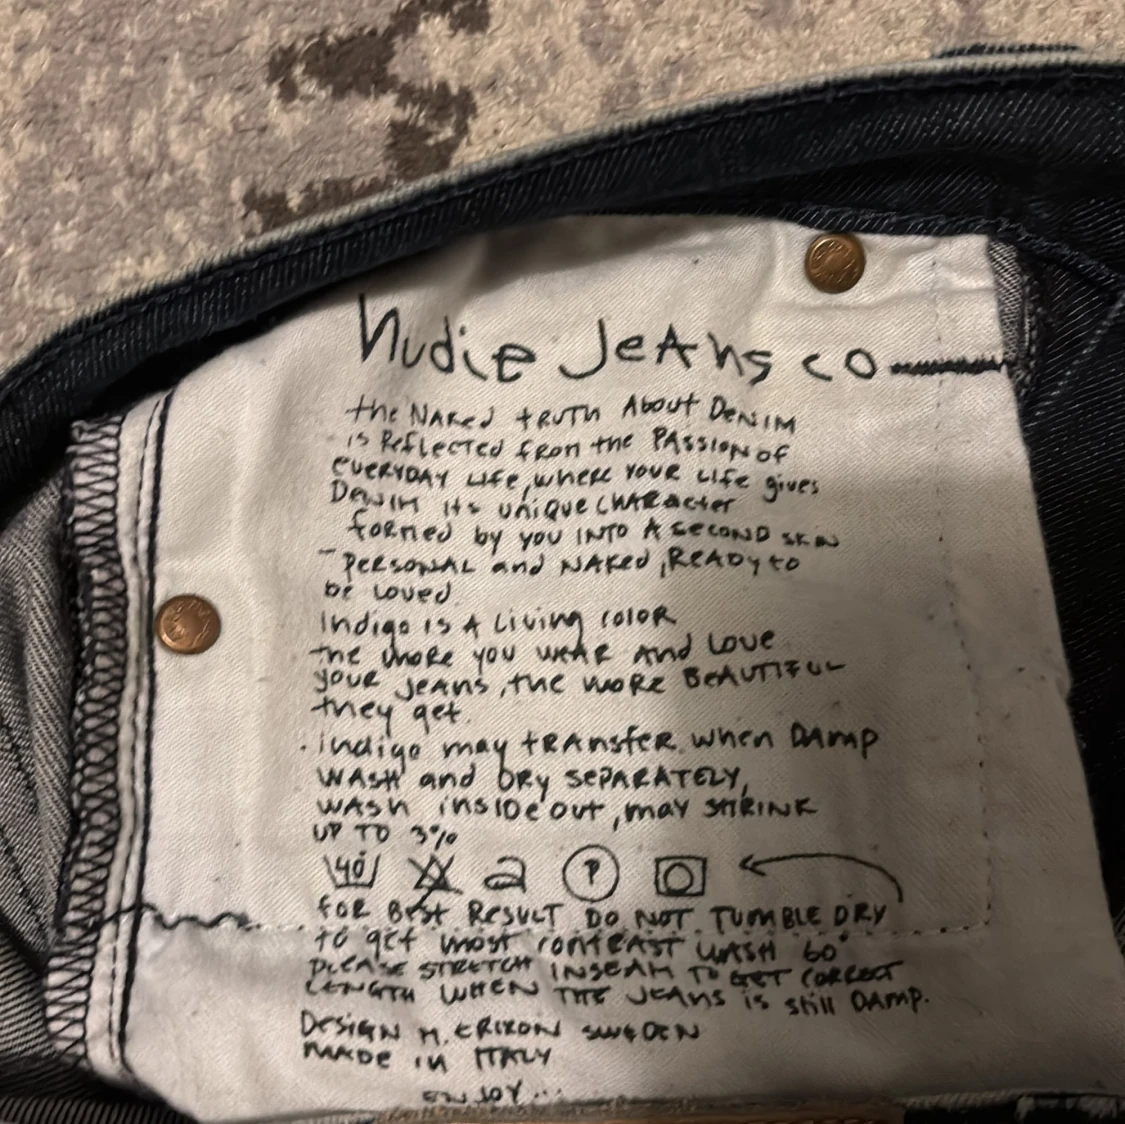 Nudie Jeans co
the NAKed tRUTH About DENIM
is Reflected fron the PAssion of
everyday Life, where your Life gives
Denim its unique CHARacter
formed by you INTO A second skin
- PERSONAL and NAKed, READy to
be Loved.
Indigo is A Living coloR
the more you weAR And Love
youR JeAns, the moRe BeAUTIFUL
they get.
. indigo may tRAnsfeR when DAmp
WASH and DRy sePARATELY,
WASh insIDe out, may SHRINK
UP TO 3%
40° P
FOR BEst ResuLT DO NOT TUMBLE DRY
to get most contRAST WASH 60°
PLEASE STRETCH INSEAM TO GET CORRECT
LENGTH WHEN THE JEANS is still DAmp.
DESIGN M. ERIXON SWEDEN
MADE in ITALY
ENJOY...